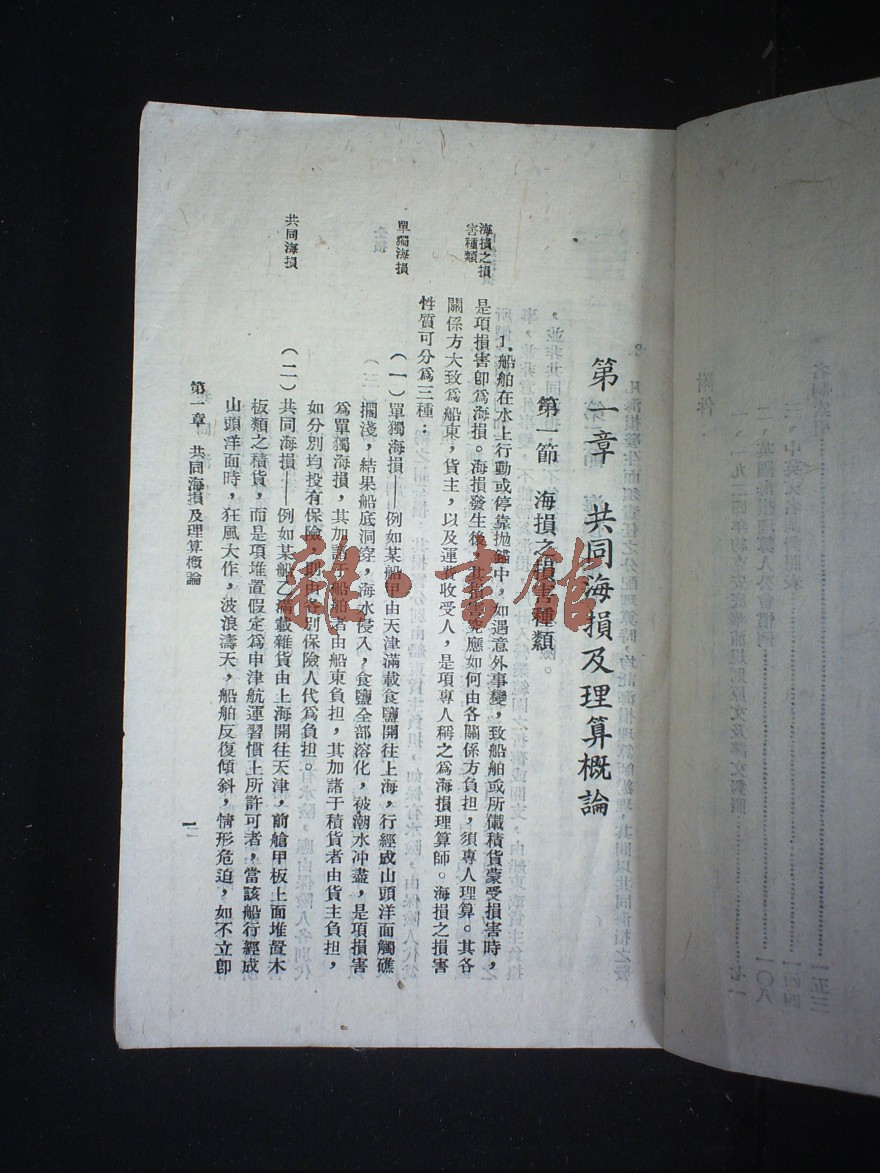 第一章　共同海損及理算概論
第一節　海損之損害種類
海損之損
害種類
1. 船舶在水上行動或停靠拋錨中，如遇意外事變，致船舶或所儎積貨蒙受損害時，
是項損害卽爲海損。海損發生後，其損害究應如何由各關係方負担，須專人理算。其各
關係方大致爲船東，貨主，以及運費收受人，是項專人稱之爲海損理算師。海損之損害
性質可分爲三種：
單獨海損
（一）單獨海損——例如某船甲由天津滿載食鹽開往上海，行經成山頭洋面觸礁
擱淺，結果船底洞穿，海水侵入，食鹽全部溶化，被潮水冲盡，是項損害
爲單獨海損，其加諸于船舶者由船東負担，其加諸于積貨者由貨主負担，
如分別均投有保險，則由各別保險人代爲負担。
共同海損
（二）共同海損——例如某船乙滿載雜貨由上海開往天津，前艙甲板上面堆置木
板類之積貨，而是項堆置假定爲申津航運習慣上所許可者，當該船行經成
山頭洋面時，狂風大作，波浪濤天，船舶反復傾斜，情形危迫，如不立卽
第一章　共同海損及理算概論
一
雜·書館
附件：
一五三
一四四
一〇八
七一